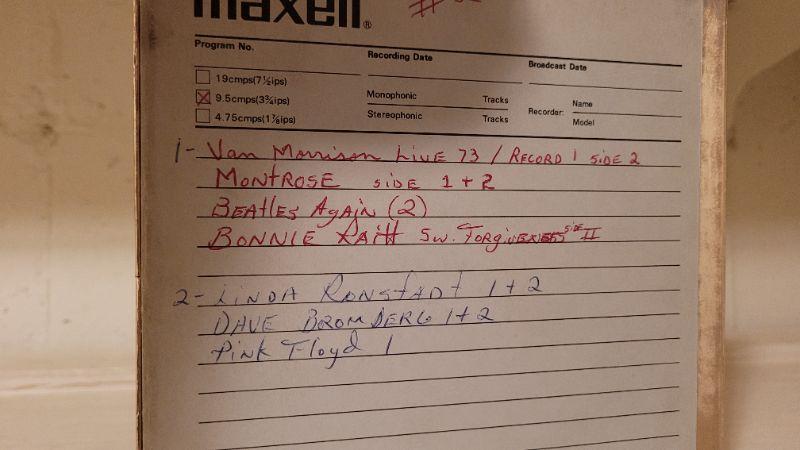 maxell®
Program No. Recording Date Broadcast Date
19cmps(7½ips)
9.5cmps(3¾ips) Monophonic Tracks Recorder: Name
4.75cmps(1⅞ips) Stereophonic Tracks Model
1- Van Morrison LIVE 73 / RECORD 1 SIDE 2
MONTROSE SIDE 1 + 2
BEATLES AGAIN (2)
BONNIE RAITT SW. FORGIVENESS SIDE II
2- LINDA RONSTADT 1 + 2
DAVE BROMBERG 1 + 2
PINK FLOYD 1